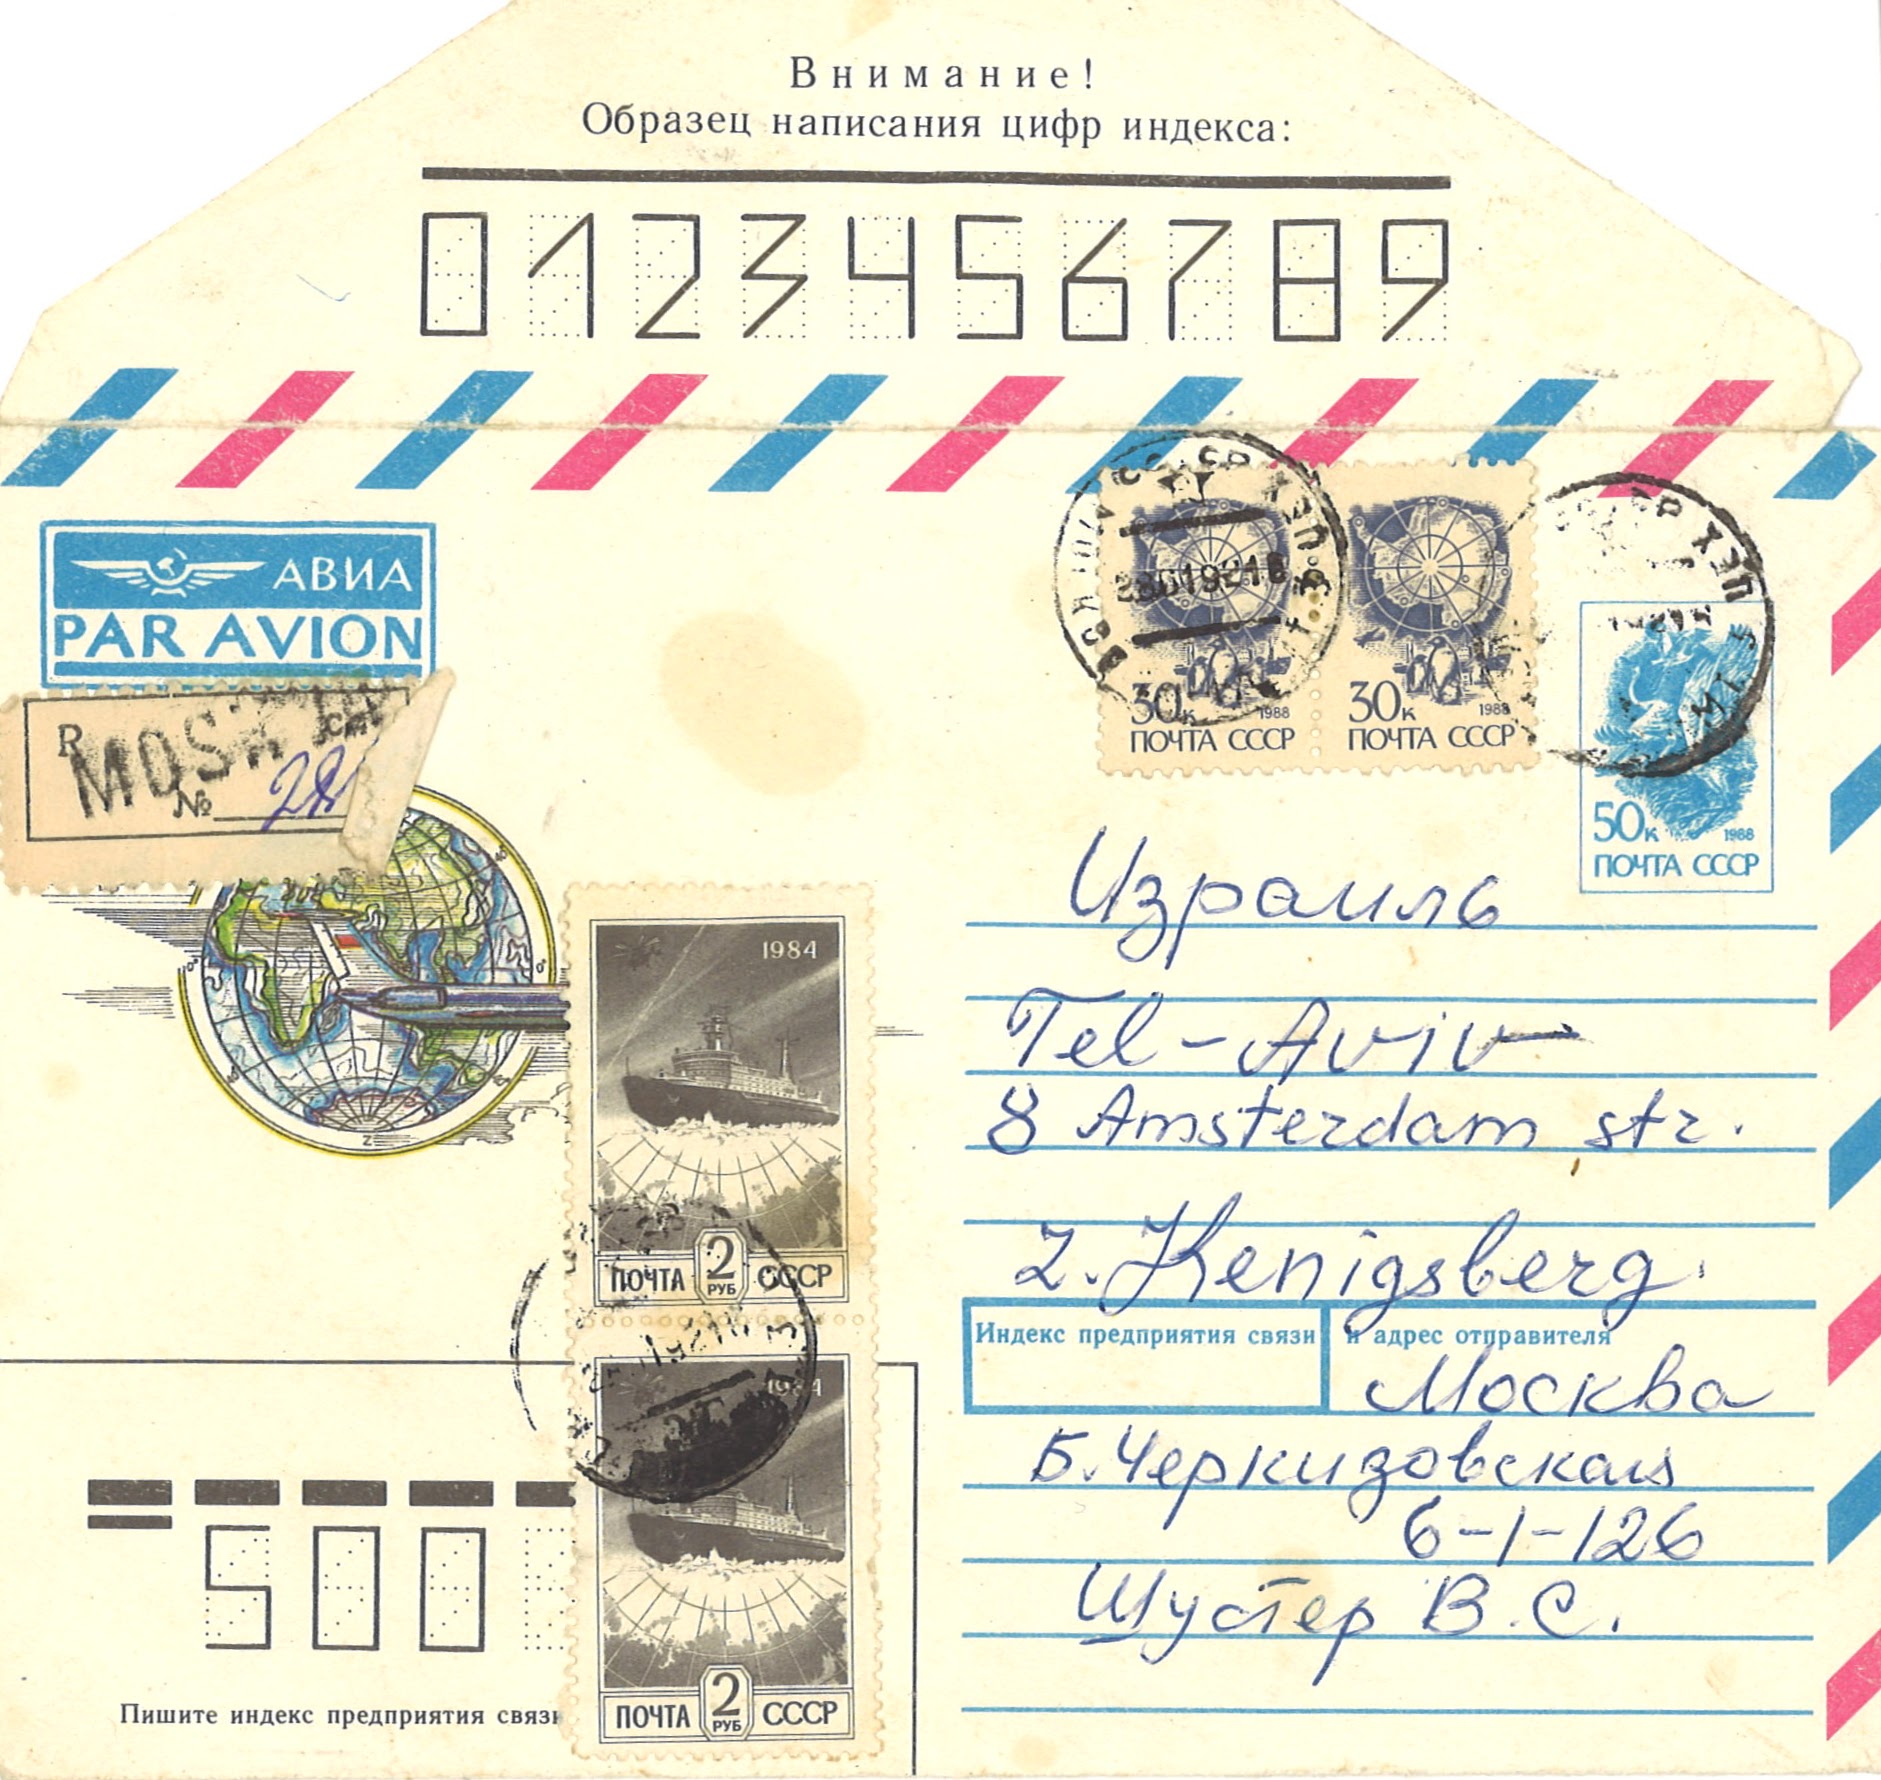 Внимание!
Образец написания цифр индекса:
0123456789
АВИА
PAR AVION
R
MOSK
№ 28
30к 1988
ПОЧТА СССР
30к 1988
ПОЧТА СССР
50к 1988
ПОЧТА СССР
1984
ПОЧТА 2 РУБ СССР
1984
ПОЧТА 2 РУБ СССР
Израиль
Tel-Aviv
8 Amsterdam str.
Z. Kenigsberg.
Индекс предприятия связи и адрес отправителя
Москва
Б. Черкизовская
6-1-126
Шустер В.С.
500
Пишите индекс предприятия связи